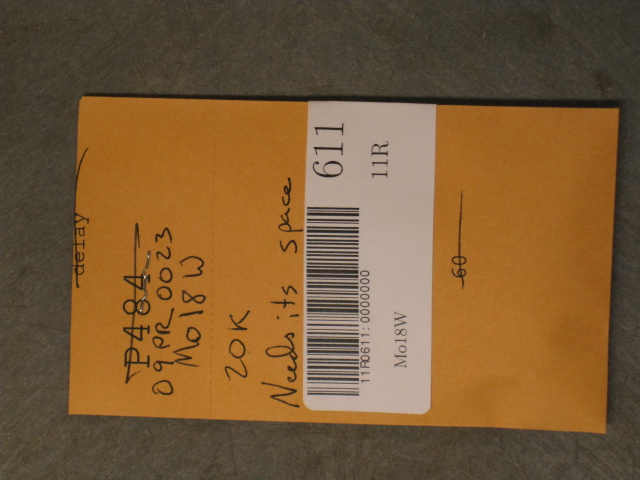 delay
P484
09PR0023
Mo18W
20K
Needs its space
611
11R
11R0611:0000000
Mo18W
60